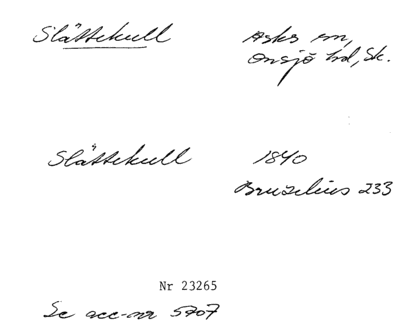 Slättekull Asks sn,
Onsjö hd, Sk.
Slättekull 1840
Bruzelius 233
Nr 23265
Se acc-nr 5707